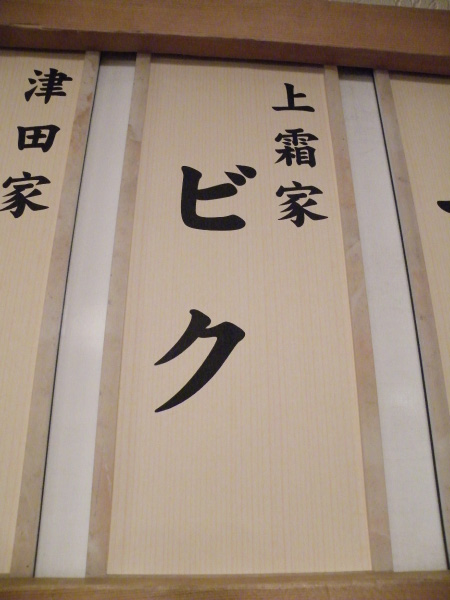 上霜家
ビク
津田家